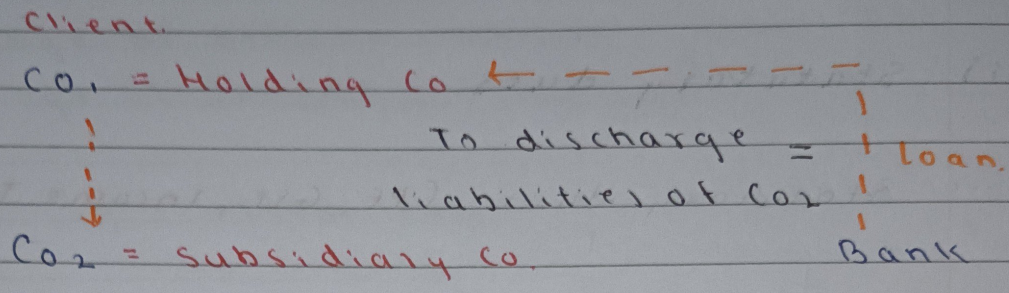 Client.
Co1 = Holding Co
To discharge = loan.
liabilities of Co2
Co2 = subsidiary Co. Bank